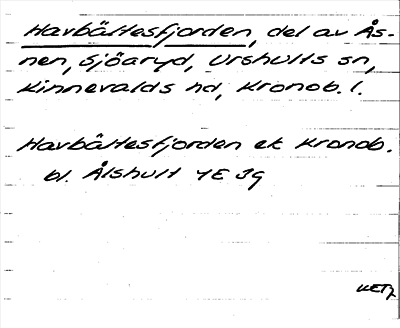 Havbältesfjorden, del av Ås-
nen, Sjöaryd, Urshults sn,
Kinnevalds hd, Kronob. l.
Havbältesfjorden ek Kronob.
bl. Ålshult 4E 3g